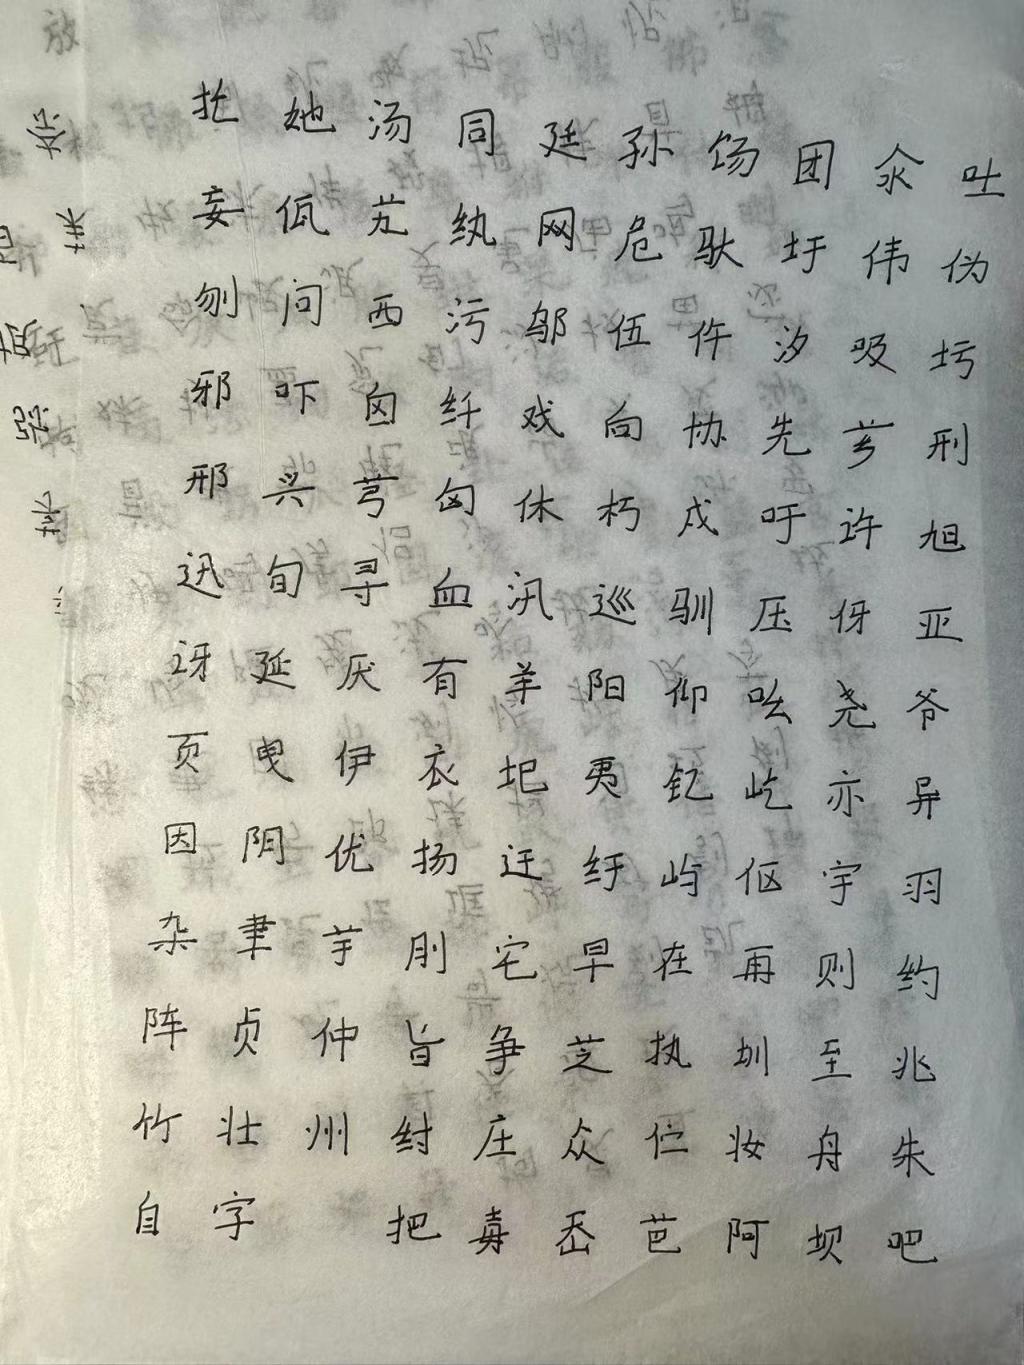 托 她 汤 同 廷 孙 饧 团 汆 吐
妄 佤 芄 纨 网 危 驮 圩 伟 伪
刎 问 西 污 邬 伍 仵 汐 吸 圬
邪 吓 囟 纤 戏 向 协 先 芗 刑
邢 兴 芎 匈 休 朽 戍 吁 许 旭
迅 旬 寻 血 汛 巡 驯 压 伢 亚
讶 延 厌 有 羊 阳 仰 吆 尧 爷
页 曳 伊 衣 圯 夷 钇 屹 亦 异
因 阴 优 扬 迂 纡 屿 伛 宇 羽
杂 聿 芋 刖 宅 早 在 再 则 约
阵 贞 仲 旨 争 芝 执 圳 至 兆
竹 壮 州 纣 庄 众 伫 妆 舟 朱
自 字 把 岙 芭 阿 坝 吧